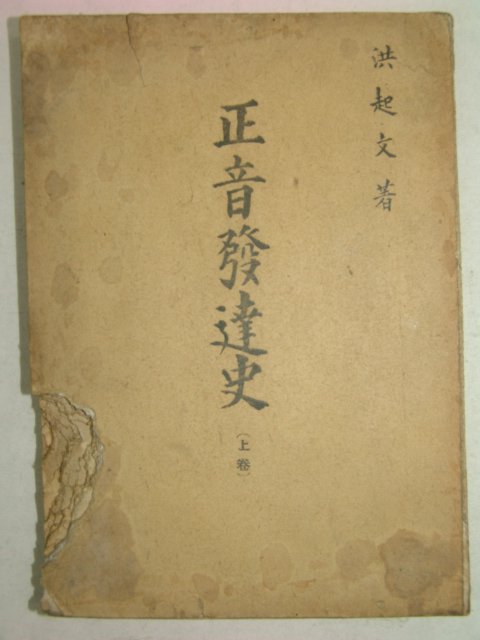 洪起文著
正音發達史
(上卷)